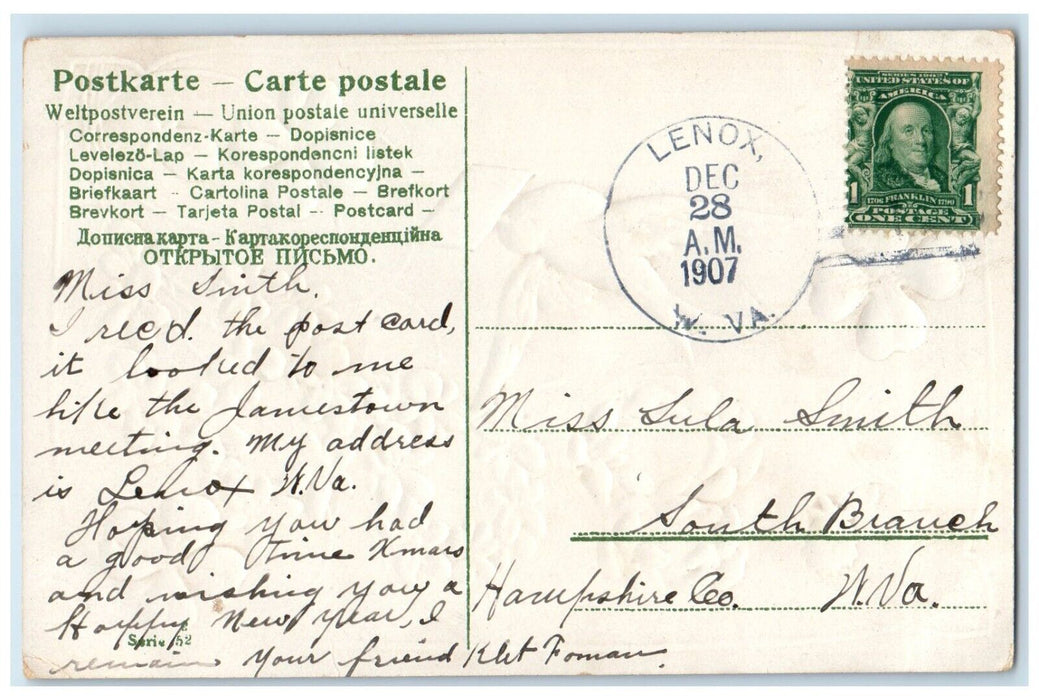 Postkarte — Carte postale
Weltpostverein — Union postale universelle
Correspondenz-Karte — Dopisnice
Levelező-Lap — Korespondencni listek
Dopisnica — Karta korespondencyjna —
Briefkaart — Cartolina Postale — Brefkort
Brevkort — Tarjeta Postal — Postcard —
Дописна карта - Карта кореспонденційна
ОТКРЫТОЕ ПИСЬМО.
Miss Smith.
I rec'd. the post card,
it looked to me
like the Jamestown
meeting. My address
is Lenox W.Va.
Hoping you had
a good time Xmas
and wishing you a
Happy New Year, I
Serie 52
remain your friend
LENOX,
DEC
28
A.M.
1907
W. VA.
SERIES 1902
UNITED STATES OF
AMERICA
1 1
1706 FRANKLIN 1790
POSTAGE
ONE CENT
Miss Lula Smith
South Branch
Hampshire Co. W.Va.